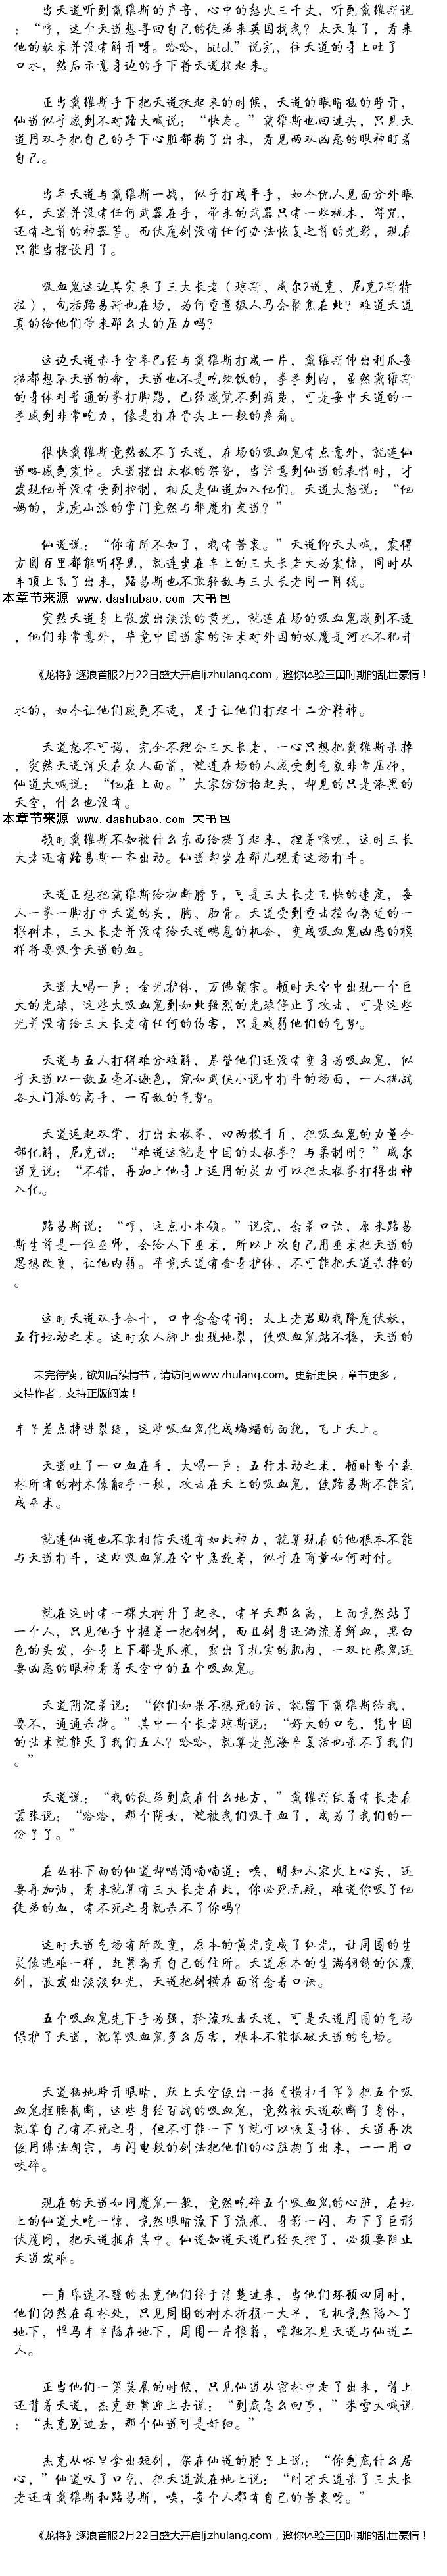 当天道听到戴维斯的声音，心中的怒火三千丈，听到戴维斯说
：“哼，这个天道想寻回自己的徒弟来英国找我？太天真了，看来
他的妖术并没有解开呀。哈哈，bitch”说完，往天道的身上吐了
口水，然后示意身边的手下将天道捉起来。
正当戴维斯手下把天道扶起来的时候，天道的眼睛猛的睁开，
仙道似乎感到不对路大喊说：“快走。”戴维斯也回过头，只见天
道用双手把自己的手下心脏都掏了出来，看见两双凶恶的眼神盯着
自己。
当年天道与戴维斯一战，似乎打成平手，如今仇人见面分外眼
红，天道并没有任何武器在手，带来的武器只有一些桃木，符咒，
还有之前的神器等。而伏魔剑没有任何办法恢复之前的光彩，现在
只能当摆设用了。
吸血鬼这边其实来了三大长老（琼斯、威尔?道克、尼克?斯特
拉），包括路易斯也在场，为何重量级人马会聚焦在此？难道天道
真的给他们带来那么大的压力吗？
这边天道赤手空拳已经与戴维斯打成一片，戴维斯伸出利爪每
招都想取天道的命，天道也不是吃软饭的，拳拳到肉，虽然戴维斯
的身体对普通的拳打脚踢，已经感觉不到痛楚，可是每中天道的一
拳感到非常吃力，像是打在骨头上一般的疼痛。
很快戴维斯竟然敌不了天道，在场的吸血鬼有点意外，就连仙
道略感到震惊。天道摆出太极的架势，当注意到仙道的表情时，才
发现他并没有受到控制，相反是仙道加入他们。天道大怒说：“他
妈的，龙虎山派的掌门竟然与邪魔打交道？”
仙道说：“你有所不知了，我有苦衷。”天道仰天大喊，震得
方圆百里都能听得见，就连坐在车上的三大长老大为震惊，同时从
车顶上飞了出来，路易斯也不敢轻敌与三大长老同一阵线。
本章节来源 www.dashubao.com 大书包
突然天道身上散发出淡淡的黄光，就连在场的吸血鬼感到不适
，他们非常意外，毕竟中国道家的法术对外国的妖魔是河水不犯井
《龙将》逐浪首服2月22日盛大开启lj.zhulang.com，邀你体验三国时期的乱世豪情！
水的，如今让他们感到不适，足于让他们打起十二分精神。
天道怒不可谒，完全不理会三大长老，一心只想把戴维斯杀掉
，突然天道消灭在众人面前，就连在场的人感受到气氛非常压抑，
仙道大喊说：“他在上面。”大家纷纷抬起头，却见的只是漆黑的
天空，什么也没有。
本章节来源 www.dashubao.com 大书包
顿时戴维斯不知被什么东西给提了起来，捏着喉咙，这时三长
大老还有路易斯一齐出动。仙道却坐在那儿观看这场打斗。
天道正想把戴维斯给扭断脖子，可是三大长老飞快的速度，每
人一拳一脚打中天道的头，胸、肋骨。天道受到重击撞向离近的一
棵树木，三大长老并没有给天道喘息的机会，变成吸血鬼凶恶的模
样将要吸食天道的血。
天道大喝一声：金光护体，万佛朝宗。顿时天空中出现一个巨
大的光球，这些大吸血鬼到如此强烈的光球停止了攻击，可是这些
光并没有给三大长老有任何的伤害，只是减弱他们的气势。
天道与五人打得难分难解，尽管他们还没有变身为吸血鬼，似
乎天道以一敌五毫不逊色，宛如武侠小说中打斗的场面，一人挑战
各大门派的高手，一百敌的气势。
天道运起双掌，打出太极拳，四两拨千斤，把吸血鬼的力量全
部化解，尼克说：“难道这就是中国的太极拳？与柔制刚？”威尔
道克说：“不错，再加上他身上运用的灵力可以把太极拳打得出神
入化。
路易斯说：“哼，这点小本领。”说完，念着口诀，原来路易
斯生前是一位巫师，会给人下巫术，所以上次自己用巫术把天道的
思想改变，让他内弱。毕竟天道有金身护体，不可能把天道杀掉的
。
这时天道双手合十，口中念念有词：太上老君助我降魔伏妖，
五行地动之术。这时众人脚上出现地裂，使吸血鬼站不稳，天道的
未完待续，欲知后续情节，请访问www.zhulang.com。更新更快，章节更多，
支持作者，支持正版阅读！
车子差点掉进裂缝，这些吸血鬼化成蝙蝠的面貌，飞上天上。
天道吐了一口血在手，大喝一声：五行木动之术，顿时整个森
林所有的树木像触手一般，攻击在天上的吸血鬼，使路易斯不能完
成巫术。
就连仙道也不敢相信天道有如此神力，就算现在的他根本不能
与天道打斗，这些吸血鬼在空中盘旋着，似乎在商量如何对付。
就在这时有一棵大树升了起来，有半天那么高，上面竟然站了
一个人，只见他手中握着一把铜剑，而且剑身还淌流着鲜血，黑白
色的头发，全身上下都是爪痕，露出了扎实的肌肉，一双比恶鬼还
要凶恶的眼神看着天空中的五个吸血鬼。
天道阴沉着说：“你们如果不想死的话，就留下戴维斯给我，
要不，通通杀掉。”其中一个长老琼斯说：“好大的口气，凭中国
的法术就能灭了我们五人？哈哈，就算是范海辛复活也杀不了我们
。”
天道说：“我的徒弟到底在什么地方，”戴维斯仗着有长老在
嚣张说：“哈哈，那个阴女，就被我们吸干血了，成为了我们的一
份子了。”
在丛林下面的仙道却喝酒喃喃道：唉，明知人家火上心头，还
要再加油，看来就算有三大长老在此，你必死无疑，难道你吸了他
徒弟的血，有不死之身就杀不了你吗？
这时天道气场有所改变，原本的黄光变成了红光，让周围的生
灵像逃难一样，赶紧离开自己的住所。天道原本的生满铜锈的伏魔
剑，散发出淡淡红光，天道把剑横在面前念着口诀。
五个吸血鬼先下手为强，轮流攻击天道，可是天道周围的气场
保护了天道，就算吸血鬼多么厉害，根本不能抓破天道的气场。
天道猛地睁开眼睛，跃上天空使出一招《横扫千军》把五个吸
血鬼拦腰截断，这些身经百战的吸血鬼，竟然被天道砍断了身体，
就算自己有不死之身，但不可能一下子就可以恢复身体，天道再次
使用佛法朝宗，与闪电般的剑法把他们的心脏掏了出来，一一用口
咬碎。
现在的天道如同魔鬼一般，竟然吃碎五个吸血鬼的心脏，在地
上的仙道大吃一惊，竟然眼睛流下了流痕、身影一闪，布下了巨形
伏魔网，把天道捆在其中。仙道知道天道已经失控了，必须要阻止
天道发难。
一直昏迷不醒的杰克他们终于清楚过来，当他们环顾四周时，
他们仍然在森林处，只见周围的树木折损一大半，飞机竟然陷入了
地下，悍马车半陷在地下，周围一片狼藉，唯独不见天道与仙道二
人。
正当他们一筹莫展的时候，只见仙道从密林中走了出来，背上
还背着天道，杰克赶紧迎上去说：“到底怎么回事，”米雪大喊说
：“杰克别过去，那个仙道可是奸细。”
杰克从怀里拿出短剑，架在仙道的脖子上说：“你到底什么居
心，”仙道叹了口气，把天道放在地上说：“刚才天道杀了三大长
老还有戴维斯和路易斯，唉，每个人都有自己的苦衷呀。”
《龙将》逐浪首服2月22日盛大开启lj.zhulang.com，邀你体验三国时期的乱世豪情！